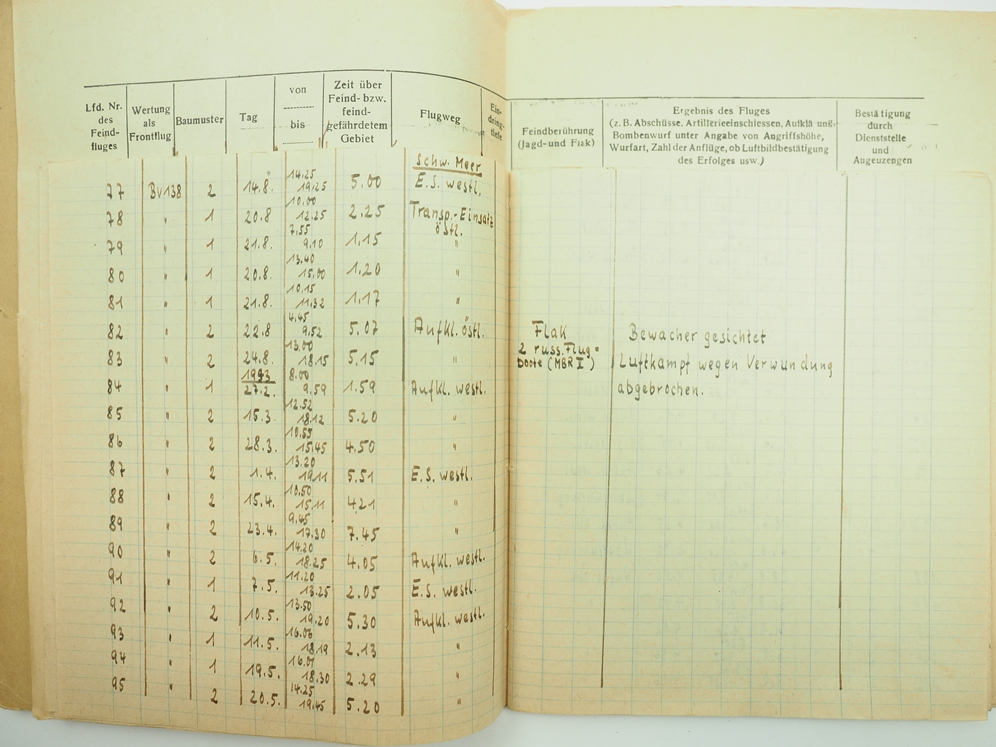 Lfd. Nr. des Feindfluges | Wertung als Frontflug | Baumuster | Tag | von bis | Zeit über Feind- bzw. feindgefährdetem Gebiet | Flugweg | Eindringtiefe | Feindberührung (Jagd- und Flak) | Ergebnis des Fluges (z. B. Abschüsse, Artillerieeinschiessen, Aufklärung, Bombenwurf unter Angabe von Angriffshöhe, Wurfart, Zahl der Anflüge, ob Luftbildbestätigung des Erfolges usw.) | Bestätigung durch Dienststelle und Augenzeugen
Schw. Meer
77 BV138 2 14.8. 14.25 19.25 5.00 E.S. westl.
78 " 1 20.8 10.00 12.25 2.25 Transp.-Einsatz östl.
79 " 1 21.8. 7.55 9.10 1.15 "
80 " 1 20.8. 13.40 15.00 1.20 "
81 " 1 21.8. 10.15 11.32 1.17 "
82 " 2 22.8 4.45 9.52 5.07 Aufkl. östl. Flak Bewacher gesichtet
83 " 2 24.8. 13.00 18.15 5.15 " 2 russ. Flugboote (MBR II) Luftkampf wegen Verwundung abgebrochen.
1943
84 " 1 27.2. 8.00 9.59 1.59 Aufkl. westl.
85 " 2 15.3. 12.52 18.12 5.20 "
86 " 2 28.3. 10.55 15.45 4.50 "
87 " 2 1.4. 13.20 19.11 5.51 E.S. westl.
88 " 2 15.4. 10.50 15.11 4.21 "
89 " 2 23.4. 9.45 17.30 7.45 "
90 " 2 6.5. 14.20 18.25 4.05 Aufkl. westl.
91 " 1 7.5. 11.20 13.25 2.05 E.S. westl.
92 " 2 10.5. 13.50 19.20 5.30 Aufkl. westl.
93 " 1 11.5. 16.06 18.19 2.13 "
94 " 1 19.5. 16.01 18.30 2.29 "
95 " 2 20.5. 14.25 19.45 5.20 "